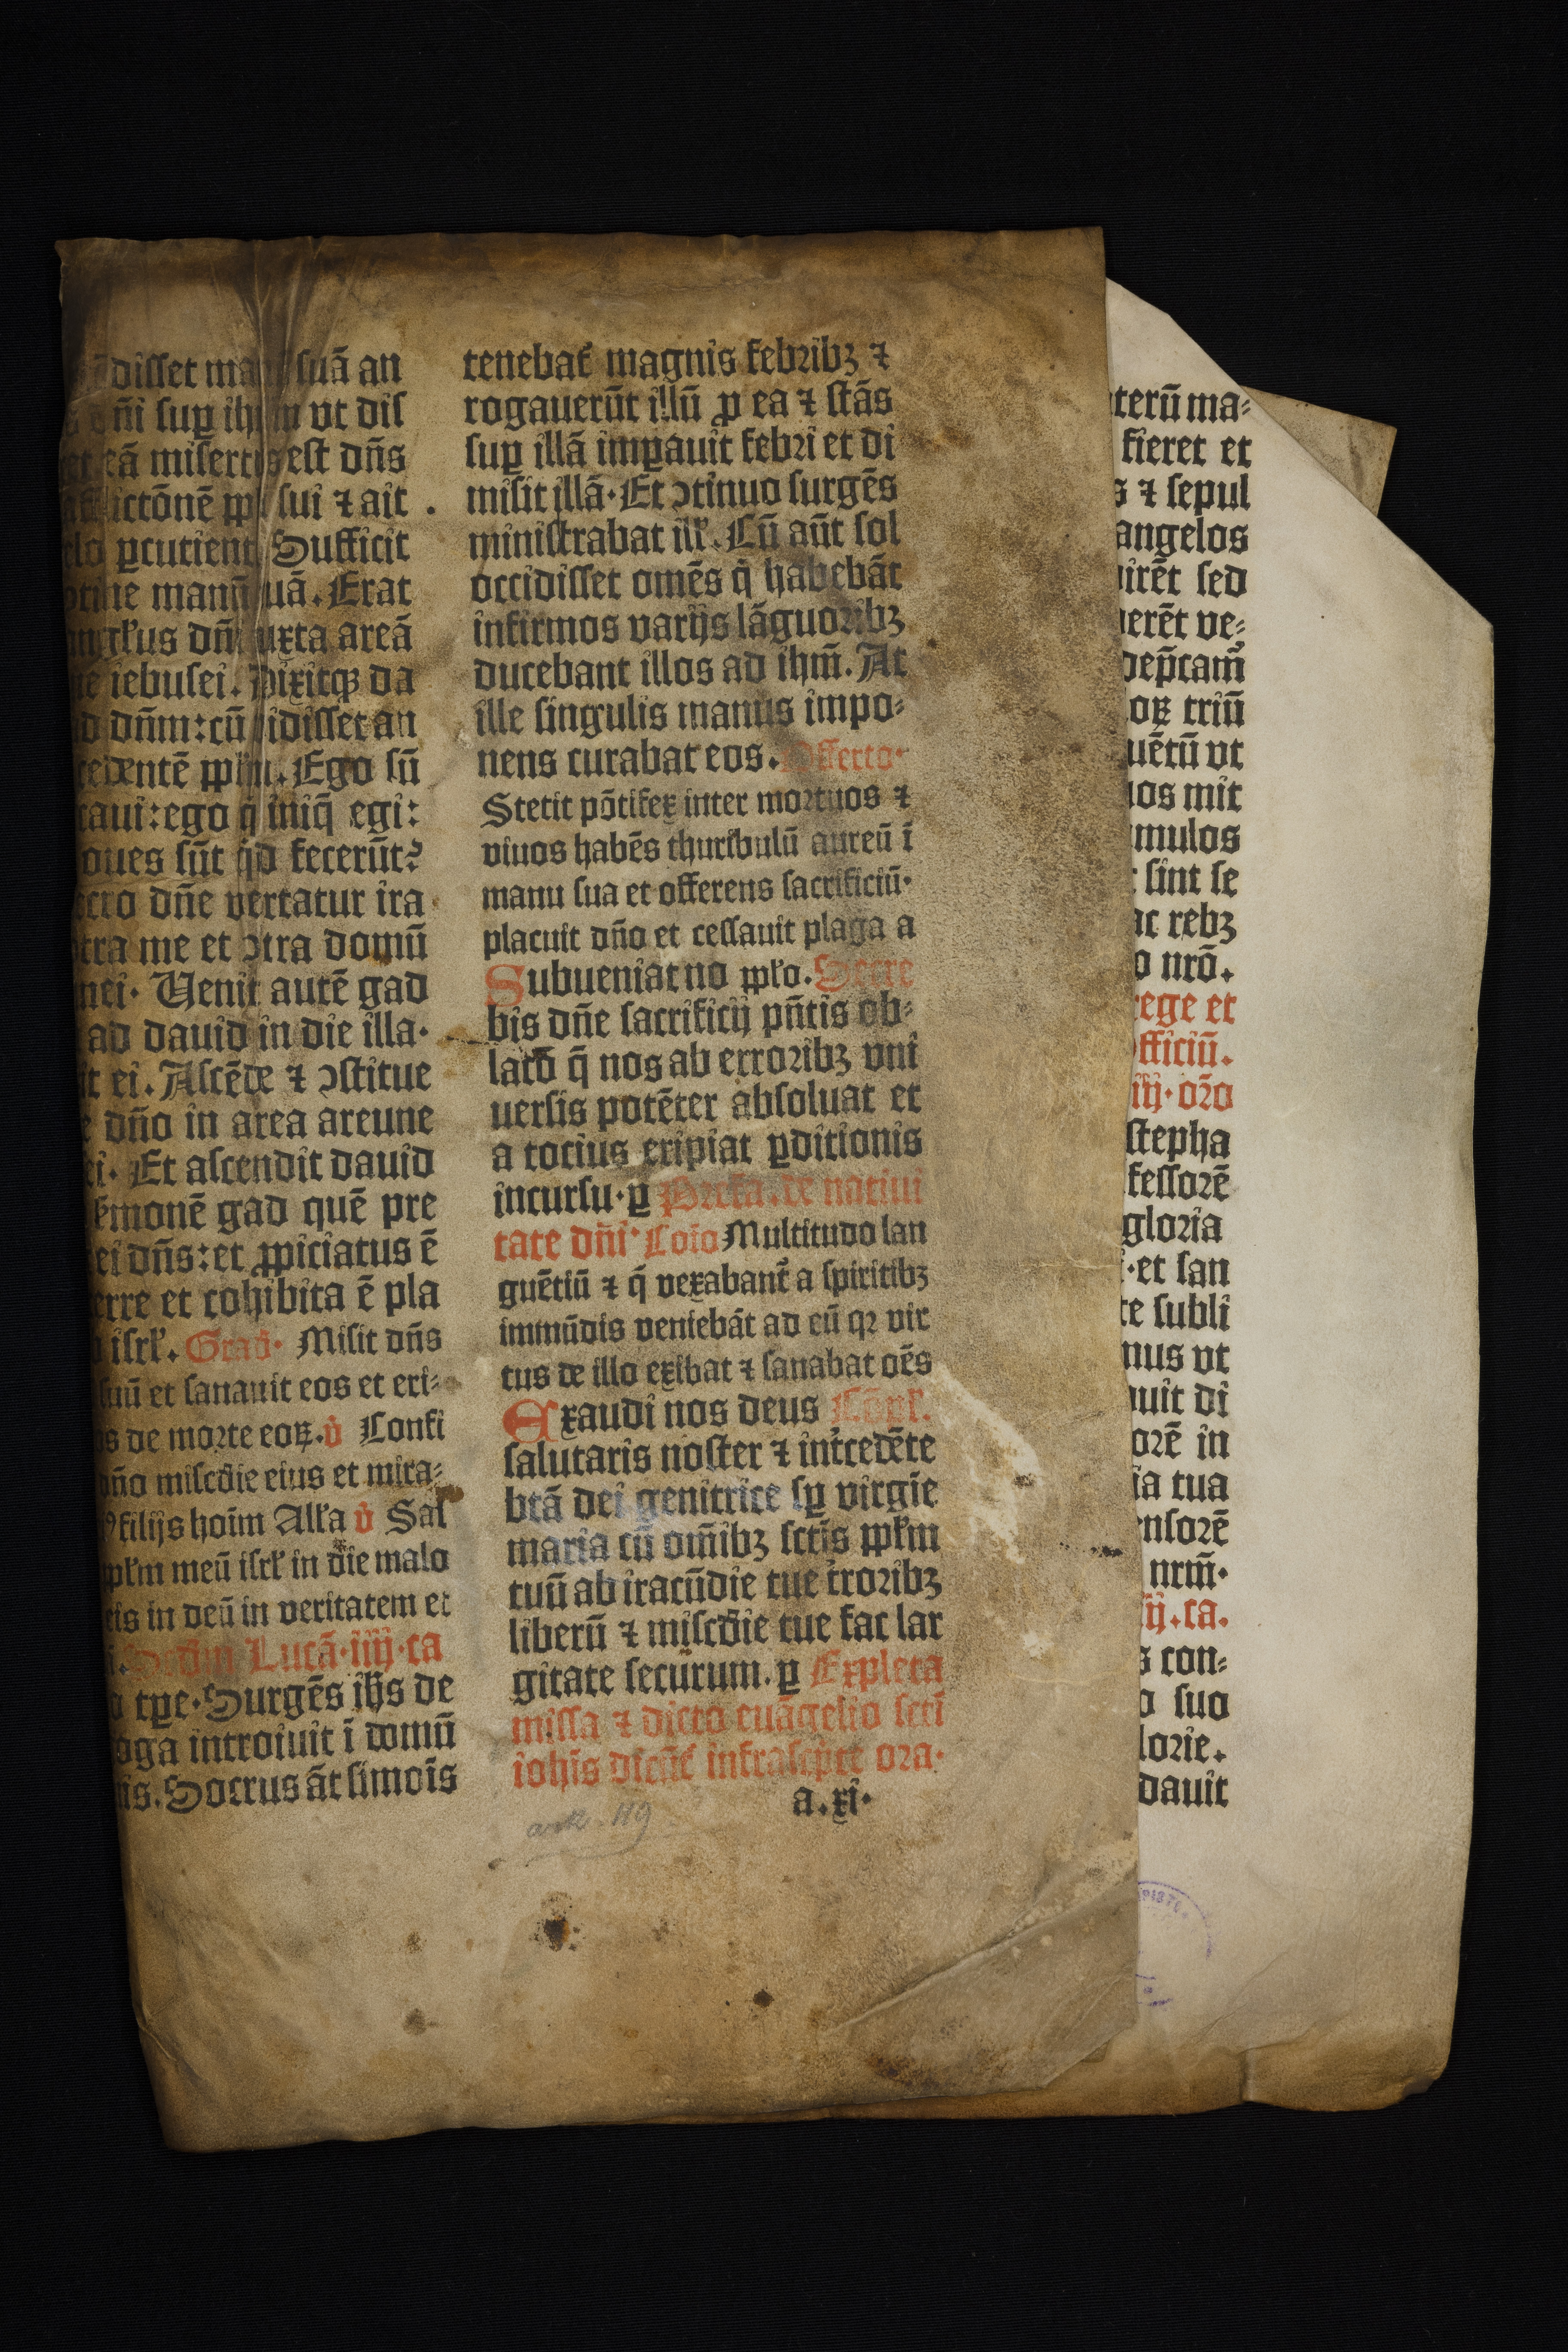 disset ma suā an
dñi suꝑ ihrlm vt dis
eā misertus est dñs
afflictōnē ppli sui ⁊ ait .
ꝑcutienti Sufficit
manū tuā. Erat
anglꝰus dñi iuxta areā
iebusei. Dixitqꝫ da
dñm: cū vidisset an
cedentē pplm. Ego sū
caui: ego q iniq̄ egi:
oues sūt qd fecerūt?
dñe vertatur ira
tra me et ↄtra domū
mei. Uenit autē gad
ad dauid in die illa.
it ei. Ascēde ⁊ ↄstitue
dño in area areune
ei. Et ascendit dauid
ẜmonē gad quē pre
ei dñs: et ꝓpiciatus ē
terre et cohibita ē pla
isrł. Grad. Misit dñs
suū et sanauit eos et eri-
os de morte eoꝝ. v̊ Confi
dño miscđie eius et mira-
filijs hoim Alła v̊ Sal
pplm meū isrł in die malo
eis in deū in veritatem et
Scđm Lucā. iiij. ca
tꝑe. Surgēs ihs de
oga introiuit ī domū
nis. Socrus āt simōis
tenebat̉ magnis febribꝫ ⁊
rogauerūt illū ꝓ ea ⁊ stās
suꝑ illā imꝑauit febri et di
misit illā. Et ↄtinuo surgēs
ministrabat ill̉. Cū aūt sol
occidisset omēs q̄ habebāt
infirmos varijs lāguoribꝫ
ducebant illos ad ihm̄. At
ille singulis manus impo-
nens curabat eos. Offerto.
Stetit pōtifex inter mortuos ⁊
viuos habēs thuribulū aureū ī
manu sua et offerens sacrificiū.
placuit dño et cessauit plaga a
Subueniat no pplo. Secre
bis dñe sacrificij pn̄tis ob-
latō q̄ nos ab erroribꝫ vni
uersis potēter absoluat et
a tocius eripiat ꝑditionis
incursu. ꝑ Prefa. de natiui
tate dñi. Coīo Multitudo lan
guētiū ⁊ q̄ vexabant̉ a spiritibꝫ
immūdis veniebāt ad eū qꝛ vir
tus de illo exibat ⁊ sanabat oēs
Exaudi nos deus Cōpl.
salutaris noster ⁊ int̉cedēte
btā dei genitrice sꝑ virgīe
maria cū om̄ibꝫ sctīs pplm
tuū ab iracūdie tue t̉roribꝫ
liberū ⁊ miscđie tue fac lar
gitate securum. ꝑ Expleta
missa ⁊ dicto euāgelio scti
iohīs dicūt̉ infrascpte ora.
a. xi.
ark. 119
terū ma-
fieret et
s ⁊ sepul
angelos
irēt sed
erēt ve-
dep̄cam̉
oꝝ triū
uētū vt
os mit
mulos
sint se
ac rebꝫ
o nrō.
rege et
officiū.
iij. orō
stepha
fessorē
gloria
et san
te subli
mus vt
uit di
orē in
ia tua
ensorē
nrm̄.
iij. ca.
s con-
o suo
lorie.
dauit